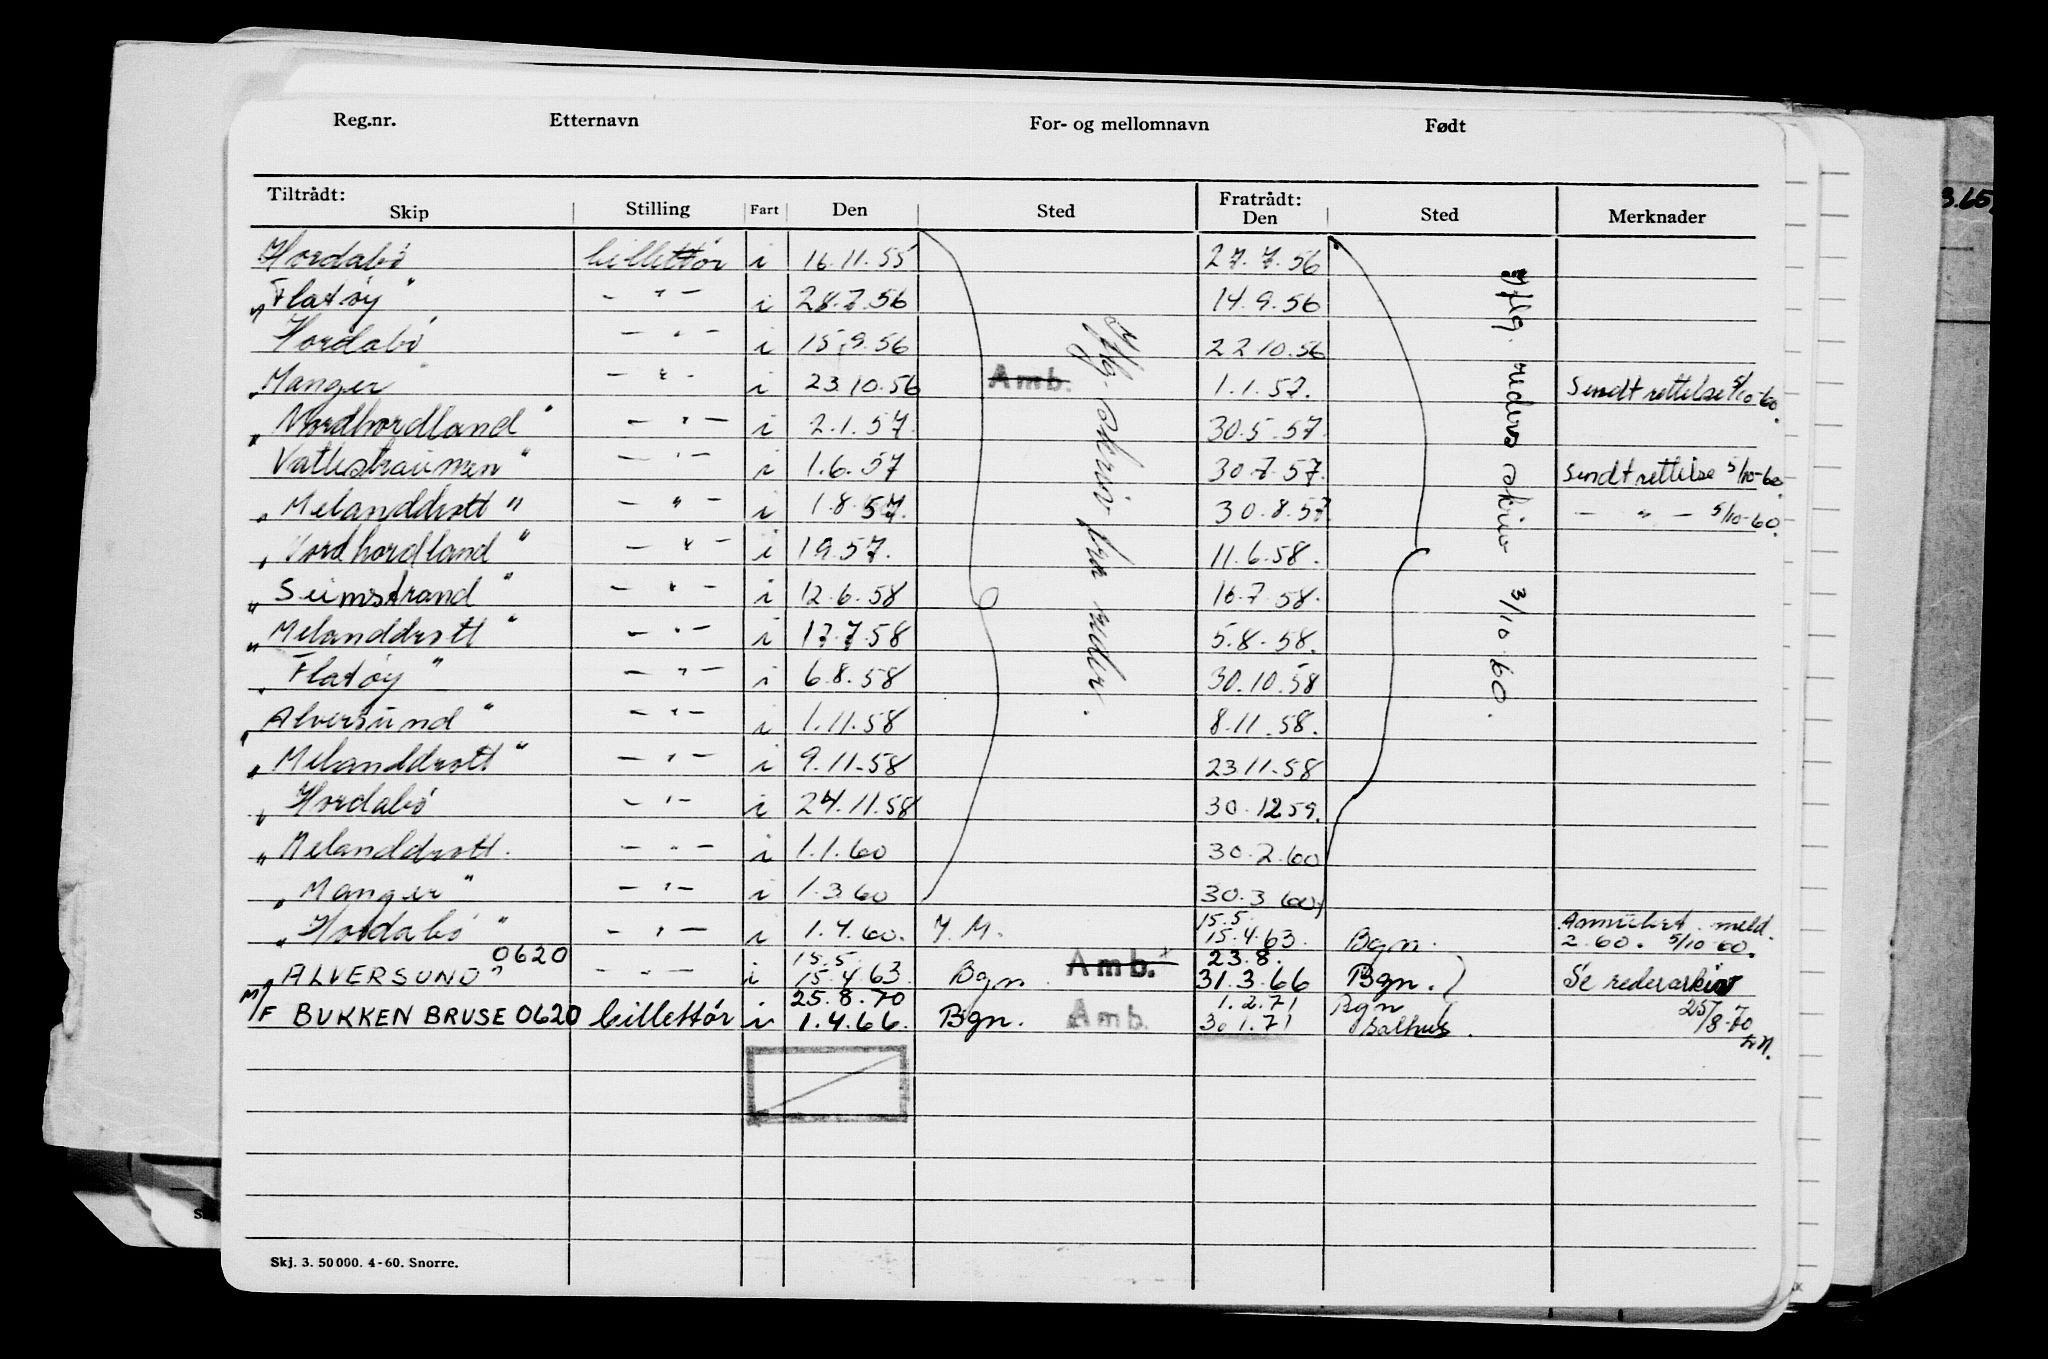 Reg.nr. Etternavn For- og mellomnavn Født
Tiltrådt: Fratrådt:
Skip Stilling Fart Den Sted Den Sted Merknader
Hordabø billettør i 16.11.55 27.7.56
"Flatøy" - " - i 28.7.56 14.9.56
Hordabø - " - i 15.9.56 22 10.56
"Manger" - " - i 23.10.56 Amb. 1.1.57. Sendt rettelse 5/10-60.
"Nordhordland" - " - i 2.1.57. 30.5.57.
Vallestraumen" - " - i 1.6.57 30.7.57. Sendt rettelse 5/10-60.
"Melanddrott" - " - i 1.8.57. 30.8.57. - " - 5/10-60.
"Nordhordland" - " - i 1 9.57. 11.6.58.
"Seimstrand" - " - i 12.6.58 16.7.58.
"Melanddrott" - " - i 17.7.58 5.8.58.
"Flatøy" - " - i 6.8.58 30.10.58
"Alversund" - " - i 1.11.58 8.11.58.
"Melanddrott" - " - i 9.11.58 23 11.58
"Hordabø - " - i 24.11.58 30.12 59.
"Melanddrott. - " - i 1.1.60 30.2.60
"Manger" - " - i 1.3 60 30.3 60
Iflg. skriv fra reder.
Iflg. reders skriv 3/10-60.
"Hordabø" - " - i 1.4.60. Y.M. 15.5. 15.4.63. Bgn. meld. 2.60. 5/10 60.
"ALVERSUND" 0620 - " - i 15.5. 15.4 63 Bgn. Amb. 23.8. 31.3.66 Bgn. Se rederarkiv
M/F BUKKEN BRUSE 0620 billettør i 25.8.70 1.4.66. Bgn. Amb. 1.2.71 30 1.71 Bgn Salhus. 25/8-70
Skj. 3. 50 000. 4-60. Snorre.